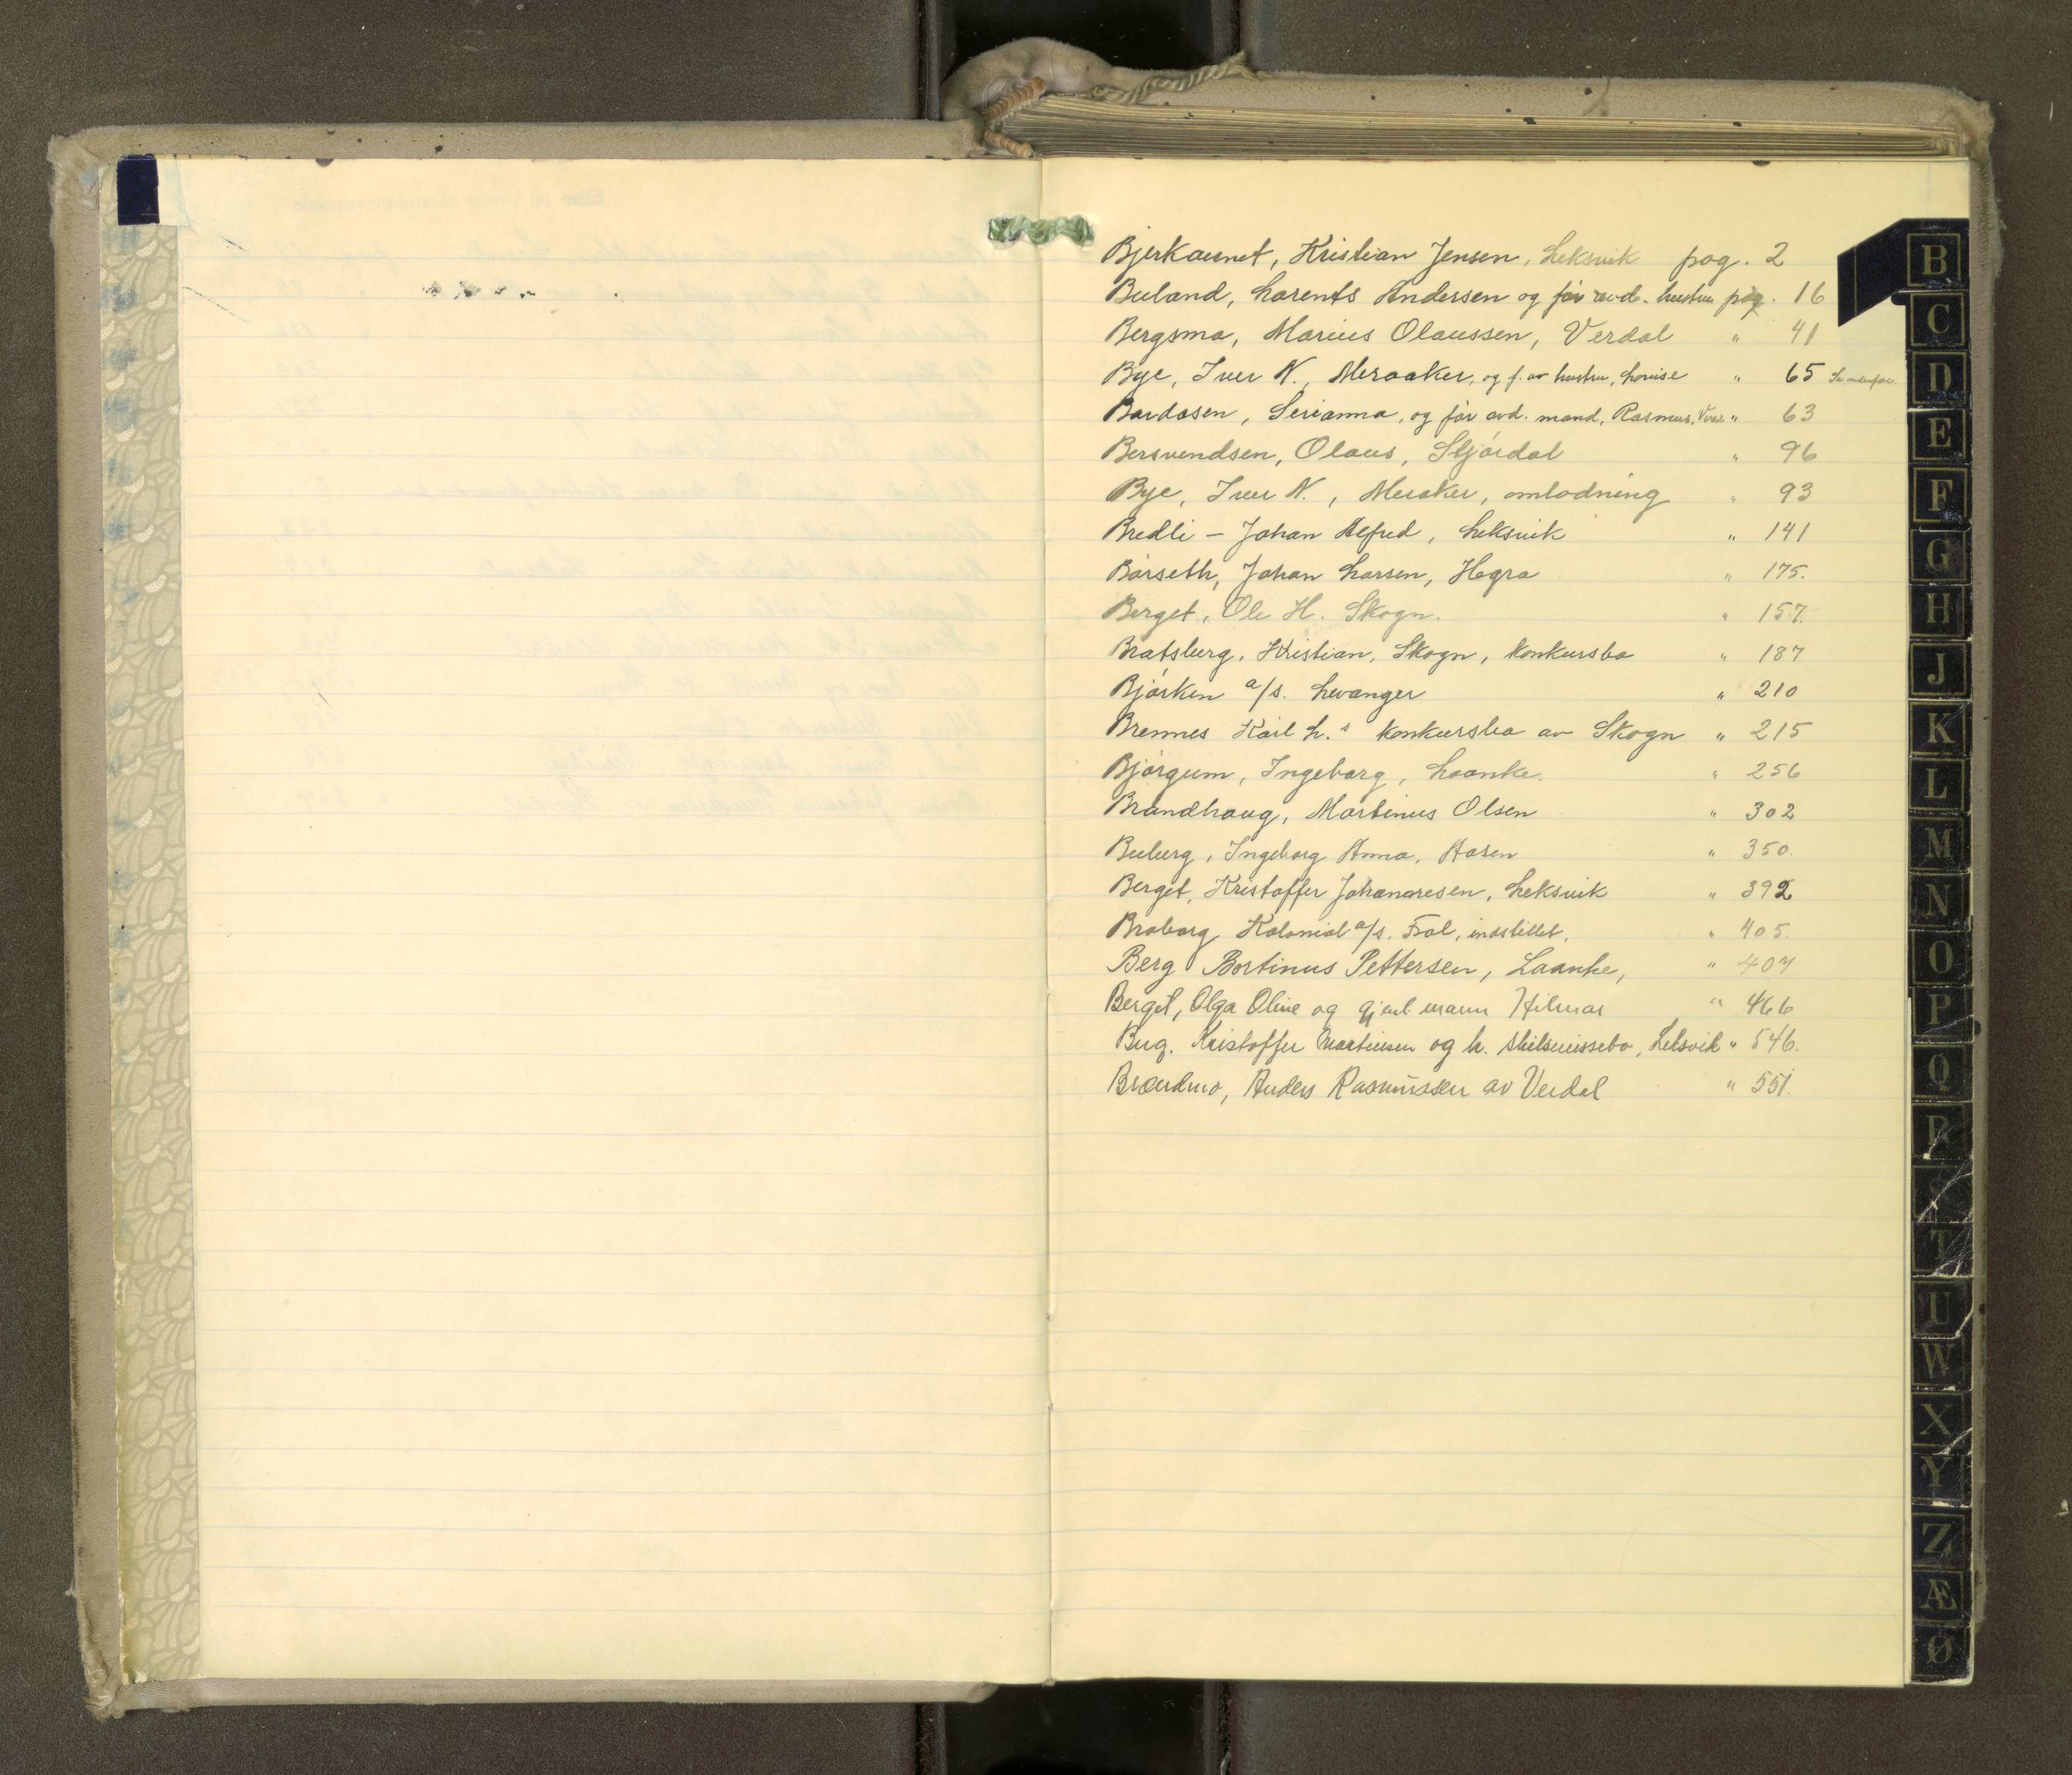 Bjerkaunet, Kristian Jensen, Leksvik pag. 2
Buland, Larents Andersen og før avd. hustru pag. 16
Bergsmo, Marius Olaussen, Verdal " 41
Bye, Iver N., Meraaker, og f. av hustru, Lovise " 65
Bardosen, Serianna, og før avd. mand, Rasmus, " 63
Bersvendsen, Olaus, Stjørdal " 96
Bye, Iver N., Meraker, omlodning " 93
Bredli - Johan Alfred, Leksvik " 141
Børseth, Johan Larsen, Hegra " 175.
Berget, Ole H. Skogn. " 157.
Bratsberg, Kristian, Skogn, konkursbo " 187
Bjørken a/s. Levanger " 210
Brennes Karl L.s konkursbo av Skogn " 215
Bjørgum, Ingeborg, Laanke. " 256
Brandhaug, Martinus Olsen " 302
Buberg, Ingeborg Anna, Aasen " 350.
Berget, Kristoffer Johannesen, Leksvik " 392
Braborg Kolonial a/s. Frol, indstillet, " 405.
Berg Bortinus Pettersen, Laanke, " 407
Berget, Olga Oline og gjenl. mann Hilmar " 466
Bug. Kristoffer Martinsen og h. skilsmissebo, Leksvik " 546.
Brændmo, Anders Rasmussen av Verdal " 551.
B
C
D
E
F
G
H
J
K
L
M
N
O
P
Q
R
S
T
U
W
X
Y
Z
Æ
Ø